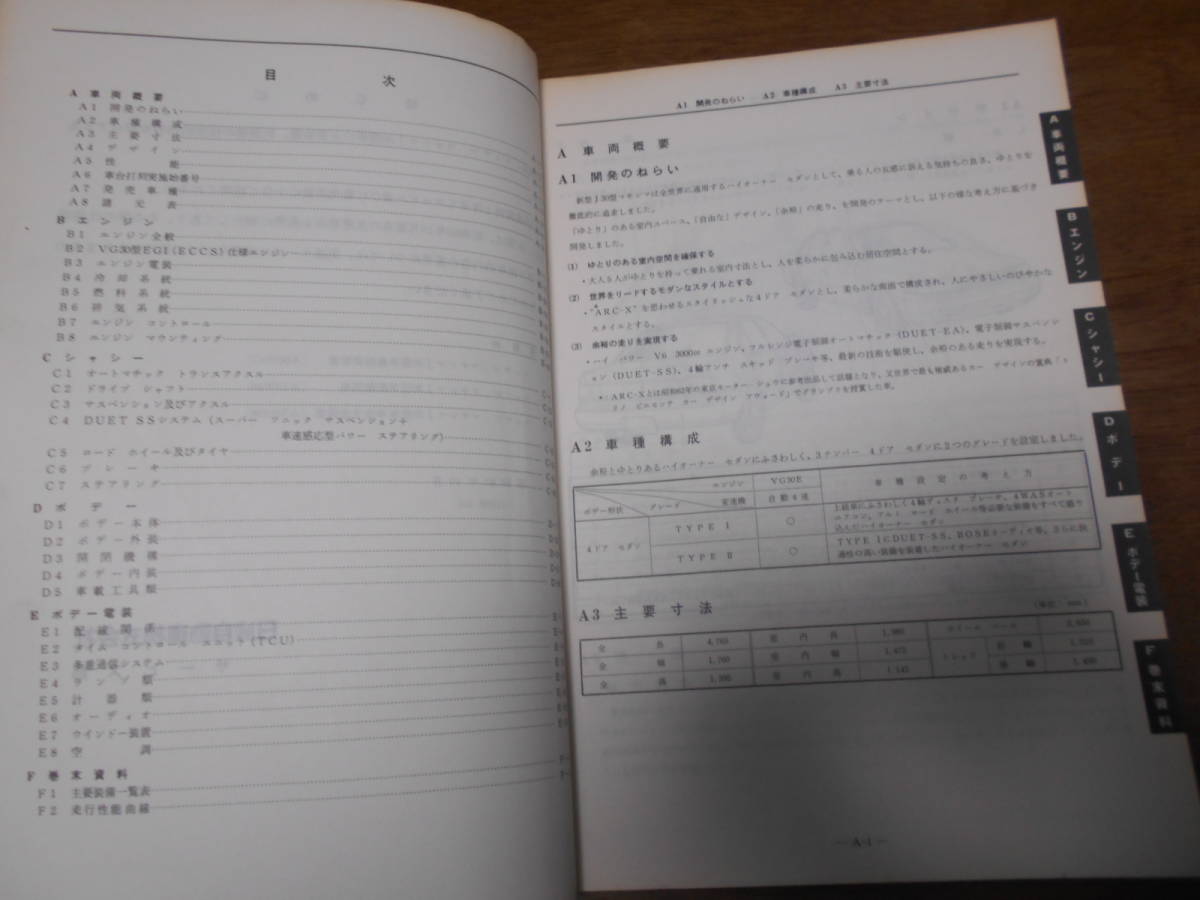 目次
A 車両概要
A1 開発のねらい
A2 車種構成
A3 主要寸法
A4 デザイン
A5 性能
A6 車台打刻実施始番号
A7 発売車種
A8 諸元表
B エンジン
B1 エンジン全般
B2 VG30型EGI(ECCS)仕様エンジン
B3 エンジン電装
B4 冷却系統
B5 燃料系統
B6 排気系統
B7 エンジン コントロール
B8 エンジン マウンティング
C シャシー
C1 オートマチック トランスアクスル
C2 ドライブ シャフト
C3 サスペンション及びアクスル
C4 DUET SSシステム(スーパー ソニック サスペンション+
車速感応型パワー ステアリング)
C5 ロード ホイール及びタイヤ
C6 ブレーキ
C7 ステアリング
D ボデー
D1 ボデー本体
D2 ボデー外装
D3 開閉機構
D4 ボデー内装
D5 車載工具類
E ボデー電装
E1 配線関係
E2 タイム コントロール ユニット(TCU)
E3 多重通信システム
E4 ランプ類
E5 計器類
E6 オーディオ
E7 ウインドー装置
E8 空調
F 巻末資料
F1 主要装備一覧表
F2 走行性能曲線
A1 開発のねらい A2 車種構成 A3 主要寸法
A 車両概要
A1 開発のねらい
新型J30型マキシマは全世界に通用するハイオーナー セダンとして、乗る人の五感に訴える気持ちの良さ、ゆとりを
徹底的に追求しました。
「ゆとり」のある室内スペース、「自由な」デザイン、「余裕」の走り、を開発のテーマとし、以下の様な考え方に基づき
開発しました。
(1) ゆとりのある室内空間を確保する
・大人5人がゆとりを持って乗れる室内寸法とし、人を柔らかに包み込む居住空間とする。
(2) 世界をリードするモダンなスタイルとする
・"ARC-X"を思わせるスタイリッシュな4ドア セダンとし、柔らかな曲面で構成され、人にやさしいのびやかな
スタイルとする。
(3) 余裕の走りを実現する
・ハイ パワー V6 3000cc エンジン、フルレンジ電子制御オートマチック(DUET-EA)、電子制御サスペンシ
ョン(DUET-SS)、4輪アンチ スキッド ブレーキ等、最新の技術を駆使し、余裕のある走りを実現する。
*:ARC-Xとは昭和62年の東京モーター ショウに参考出品して話題となり、又世界で最も権威あるカー デザインの賞典「ト
リノ ピエモンテ カー デザイン アウォード」でグランプリを授賞した車。
A2 車種構成
余裕とゆとりあるハイオーナー セダンにふさわしく、3ナンバー 4ドア セダンに2つのグレードを設定しました。
エンジン VG30E 車種設定の考え方
ボデー形状 グレード 変速機 自動4速
4ドア セダン TYPE I ○ 上級車にふさわしく4輪ディスク ブレーキ、4WASオート
エアコン、アルミ ロード ホイール等必要な装備をすべて盛り
込んだハイオーナー セダン
TYPE II ○ TYPE IにDUET-SS、BOSEオーディオ等、さらに快
適性の高い装備を装着したハイオーナー セダン
A3 主要寸法
(単位:mm)
全長 4,765 室内長 ホイール ベース 2,650
全幅 1,760 室内幅 1,475 トレッド 前輪 1,510
全高 室内高 後輪 1,490
— A-1 —
A 車両概要
B エンジン
C シャシー
D ボデー
E ボデー電装
F 巻末資料